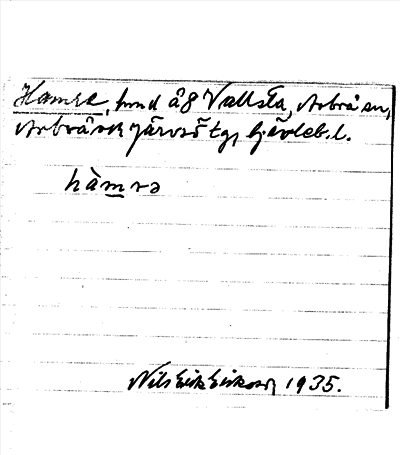 Hamre, hmd å 8 Vallsta, Arbrå sn,
Arbrå och Järvsö tg, Gävleb. l.
hàmrə
Nils Erik Eriksson 1935.